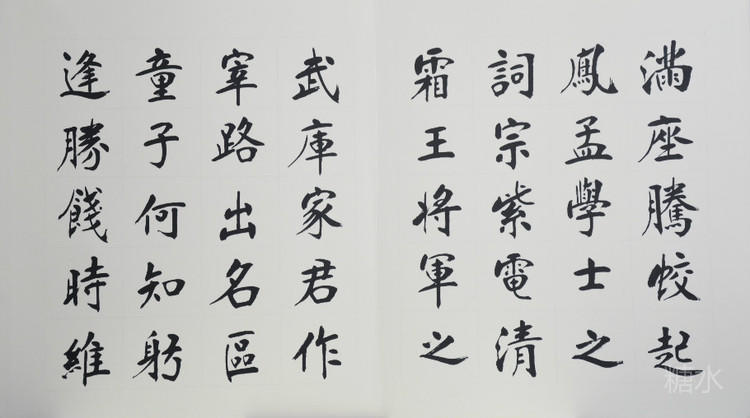 滿座騰蛟起
鳳孟學士之
詞宗紫電清
霜王将軍之
武庫家君作
宰路出名區
童子何知躬
逢勝餞時維
糖水